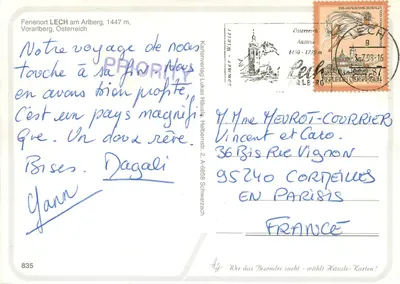 Ferienort LECH am Arlberg, 1447 m,
Vorarlberg, Österreich
Notre voyage de nous
touche à sa fin. Nous
en avons bien profité,
C'est un pays magnifi
que. Un doux rêve.
Bises. Dagali
Yann
835
PRIORITY
Kartenverlag Lukas Häusle
A-6858 Schwarzach
Sommer - Winter
Lech
LECH
M. Mme MEUROT-COURRIER
Vincent et Caro.
36 Bis Rue VIGNON
95240 CORMEILLES
EN PARISIS
FRANCE
Wer das Besondere sucht - wählt Häusle-Karten!